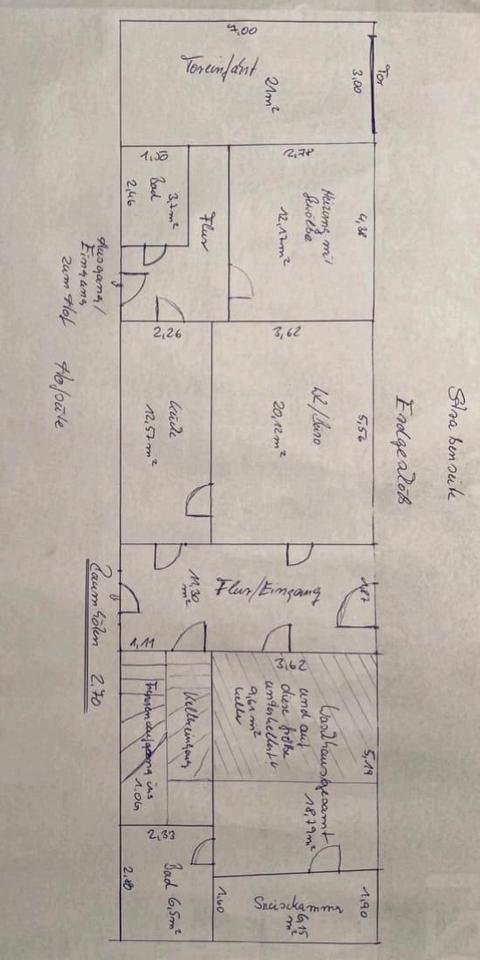 Straßenseite
Erdgeschoß
7,00
Toreinfahrt
21 m²
3,00
Tor
1,50
Bad
3,7 m²
2,46
Flur
2,78
Heizung mit
12,17 m²
4,38
Ausgang/
Eingang
zum Hof
Hofseite
2,26
Küche
12,57 m²
3,62
WZ/Büro
20,12 m²
5,56
Flur/Eingang
11,30
m²
1,87
1,11
Raumhöhen 2,70
Treppenaufgang ins
1.OG
Kellereingang
3,62
Waschhaus gesamt
18,79 m²
und auf
diese Größe
unterkellert
Keller
9,61 m²
5,19
2,33
Bad 6,5 m²
2,80
1,60
Speisekammer
6,15
m²
1,90